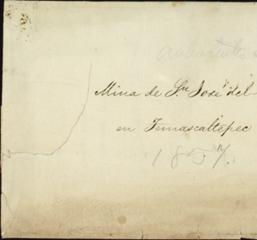 Mina de Sn José del
en Temascaltepec
185